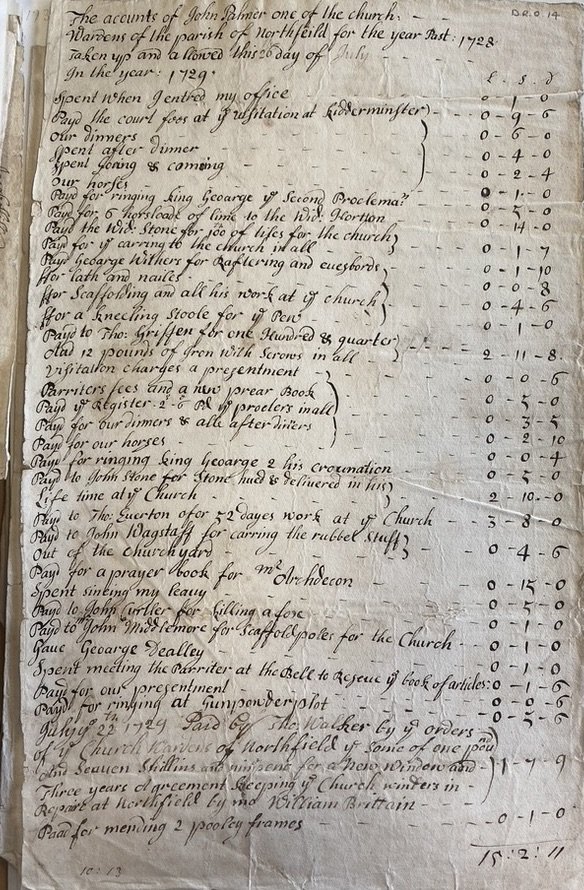 D.R.O 14
The acounts of John Palmer one of the church:
Wardens of the parish of Northfeild for the year Past: 1728
Taken up and allowed this 26 day of July
In the year: 1729
£ s d
Spent when I entred my office 0 - 1 - 0
Payd the court fees at ye visitation at Kidderminster 0 - 9 - 6
Our dinners 0 - 6 - 0
Spent after dinner 0 - 4 - 0
Spent Going & coming 0 - 2 - 4
Our horses 0 - 1 - 0
Payd for ringing King Geoarge ye Second Proclema 0 - 5 - 0
Payd for 6 horsloade of lime to the Wid: Horton 0 - 14 - 0
Payd the Wid: Stone for 100 of for the church
Payd for ye carring to the church in all 0 - 1 - 7
Payd Geoarge Withers for Raftering and euesbords 0 - 1 - 10
ffor lath and nailes 0 - 0 - 8
ffor Scaffolding and all his work at ye church 0 - 4 - 6
ffor a Kneeling Stoole for ye Pew 0 - 1 - 0
Payd to Tho: Griffen for one Hundred & quarter
And 12 pounds of Iron with Scrows in all 2 - 11 - 8
Visitation charges a presentment 0 - 0 - 6
Parriters fees and a new prear Book 0 - 5 - 0
Payd ye Register 2s-6 Pd ye procters in all 0 - 3 - 5
Payd for our dinners & alle after diners 0 - 2 - 10
Payd for our horses 0 - 0 - 4
Payd for ringing King Geoarge 2 his crownation 0 - 5 - 0
Payd to John Stone for Stone hued & delivered in his
Life time at ye Church 2 - 10 - 0
Payd to Tho: Euerton for 52 dayes work at ye Church 3 - 8 - 0
Payd to John Wagstaff for carring the rubbel Stuff
Out of the Churchyard 0 - 4 - 6
Payd for a prayer book for mr Archdecon 0 - 15 - 0
Spent sineing my leavy 0 - 5 - 0
Payd to John Curtler for Killing a fox 0 - 1 - 0
Payd to mr John Middlemore for Scaffold poles for the Church 0 - 1 - 0
Gave Geoarge Dealley 0 - 1 - 0
Spent meeting the Parriter at the Bell to Reseue ye book of articles: 0 - 1 - 0
Payd for our presentment 0 - 0 - 6
Payd for ringing at Gunpowder plot 0 - 5 - 6
July ye 22th 1729 Paid by Tho: Walker by ye orders
of ye Church Wardens of Northfield ye Some of one pou
And Seuven Shillins and ninpens for a New Window and 1 - 7 - 9
Three years agreement keeping ye Church winders in
Repair at Northfield by me William Brittain
Paad for mending 2 pooley frames 0 - 1 - 0
15 : 2 : 11
10 : 13